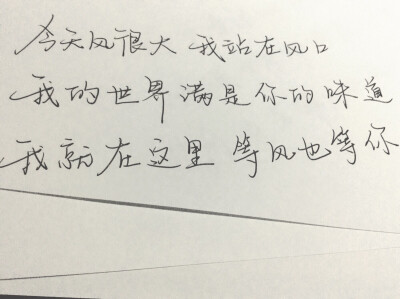 今天风很大 我站在风口
我的世界满是你的味道
我就在这里 等风也等你